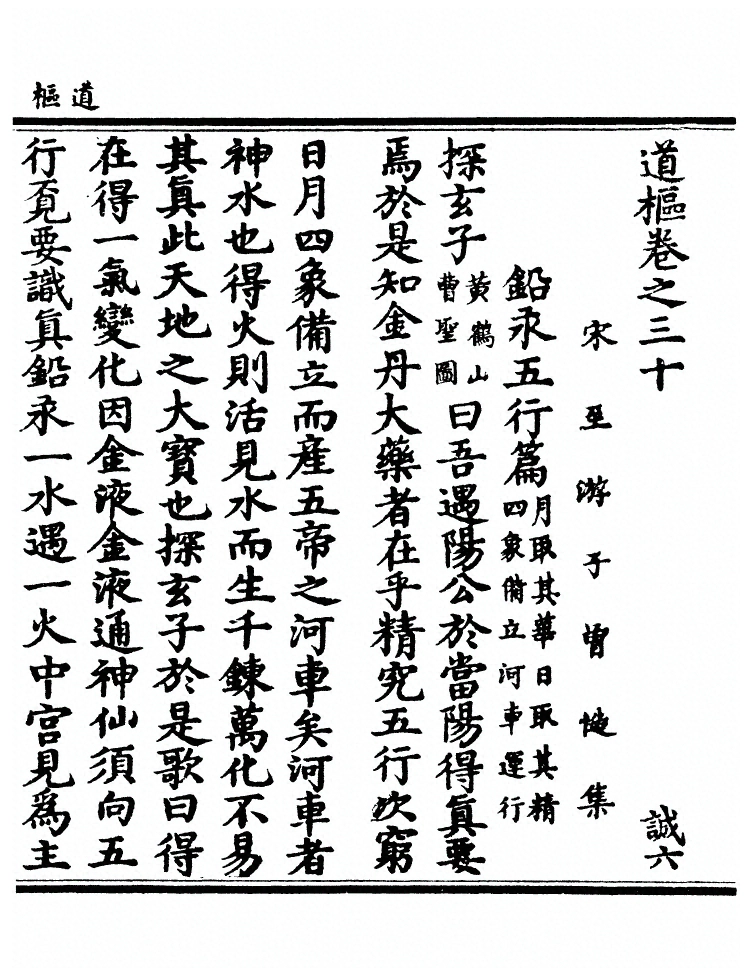 道樞
道樞卷之三十 誠六
宋至游子曾慥集
鉛汞五行篇月取其華日取其精四象備立河車運行
探玄子黃鶴山曹聖圖曰吾遇陽公於當陽得眞要
焉於是知金丹大藥者在乎精究五行次窮
日月四象備立而產五帝之河車矣河車者
神水也得火則活見水而生千鍊萬化不易
其眞此天地之大寶也探玄子於是歌曰得
在得一氣變化因金液金液通神仙須向五
行覔要識眞鉛汞一水遇一火中宮見爲主